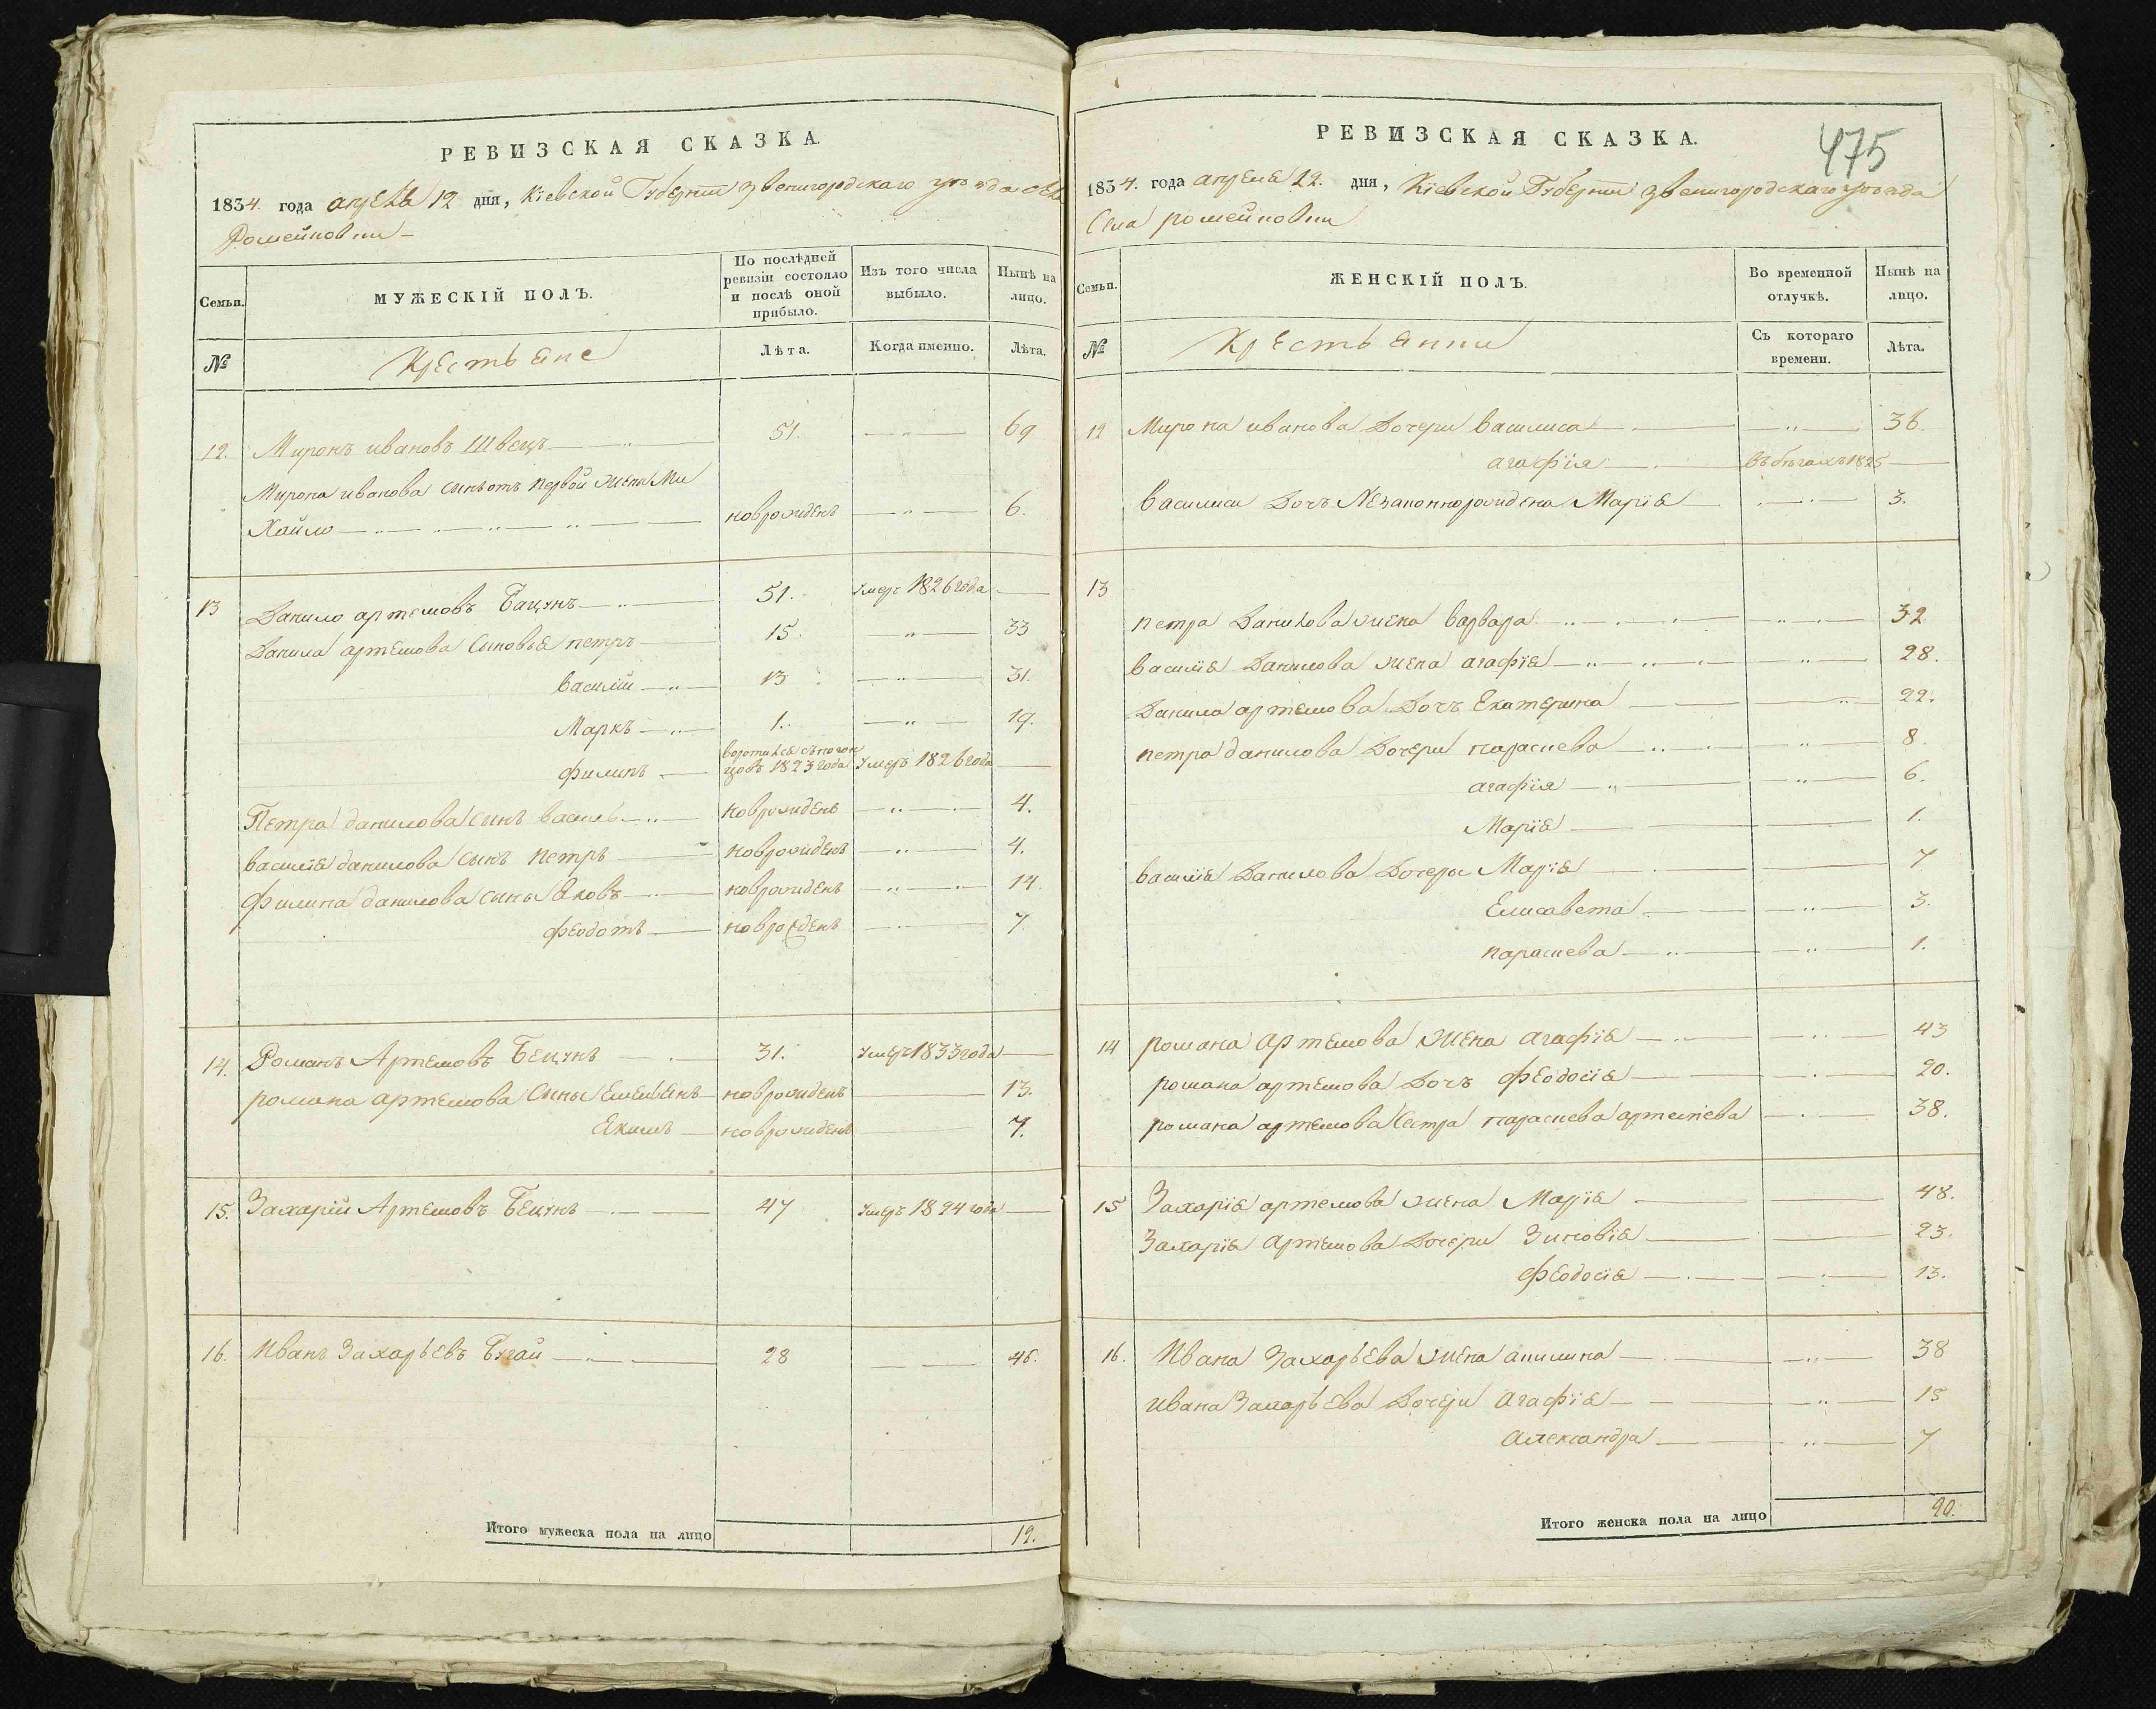 РЕВИЗСКАЯ СКАЗКА.
1834. года апреля 12 дня, Кіевской Губерніи Звенигородскаго уѣзда села
Ромейновки
Семьи.
МУЖЕСКІЙ ПОЛЪ.
По послѣдней ревизіи состояло и послѣ оной прибыло.
Изъ того числа выбыло.
Нынѣ на лицо.
№
Крестьяне
Лѣта.
Когда именно.
Лѣта.
12. Миронъ ивановъ Швецъ 51. 69
Мирона иванова сынъ отъ первой жены Ми
хайло новорожденъ 6.
13 Данило артемовъ Бацунъ 51. умеръ 1826 года
Данила артемова сыновья петръ 15. 33
василій 13 31.
Маркъ 1. 19.
воротился съ
филипъ 1823 года умеръ 1826 года
Петра данилова сынъ василь новрожденъ 4.
василія данилова сынъ петръ новрожденъ 4.
Филипа данилова сыны Яковъ новрожденъ 14.
феодотъ новрожденъ 7.
14. Романъ Артемовъ Бецунъ 31. умеръ 1833 года
романа артемова сыны Емельянъ новрожденъ 13.
Якимъ новрожденъ 7.
15. Захарій Артемовъ Бецунъ 47 умеръ 1824 года
16. Иванъ Захарьевъ Бугай 28 46.
Итого мужеска пола на лицо 12.
475
РЕВИЗСКАЯ СКАЗКА.
1834. года апреля 12. дня, Кіевской Губерніи Звенигородскаго уѣзда
Села ромейновки
Семьи.
ЖЕНСКІЙ ПОЛЪ.
Во временной отлучкѣ.
Нынѣ на лицо.
№
Крестьянки
Съ котораго времени.
Лѣта.
12 Мирона иванова Дочери василиса 36.
агафія въ бѣгахъ 1825
василисы Дочъ Незаконнорождена Марія 3.
13
петра Данилова жена варвара 32
василія Данилова жена агафія 28.
Данила артемова Дочъ Екатерина 22.
петра данилова Дочери параскева 8.
агафія 6.
Марія 1.
василія Данилова Дочеры Марія 7
Елисавета 3.
параскева 1.
14 романа Артемова жена агафія 43
романа артемова Дочъ феодосія 20.
романа артемова сестра параскева артемиева 38.
15 Захарія артемова жена Марія 48.
Захарія артемова Дочери Зиновія 23.
феодосія 13.
16. Ивана Захарьева жена акилина 38
ивана Захарьева Дочери Агафія 15
Александра 7
Итого женска пола на лицо 20.